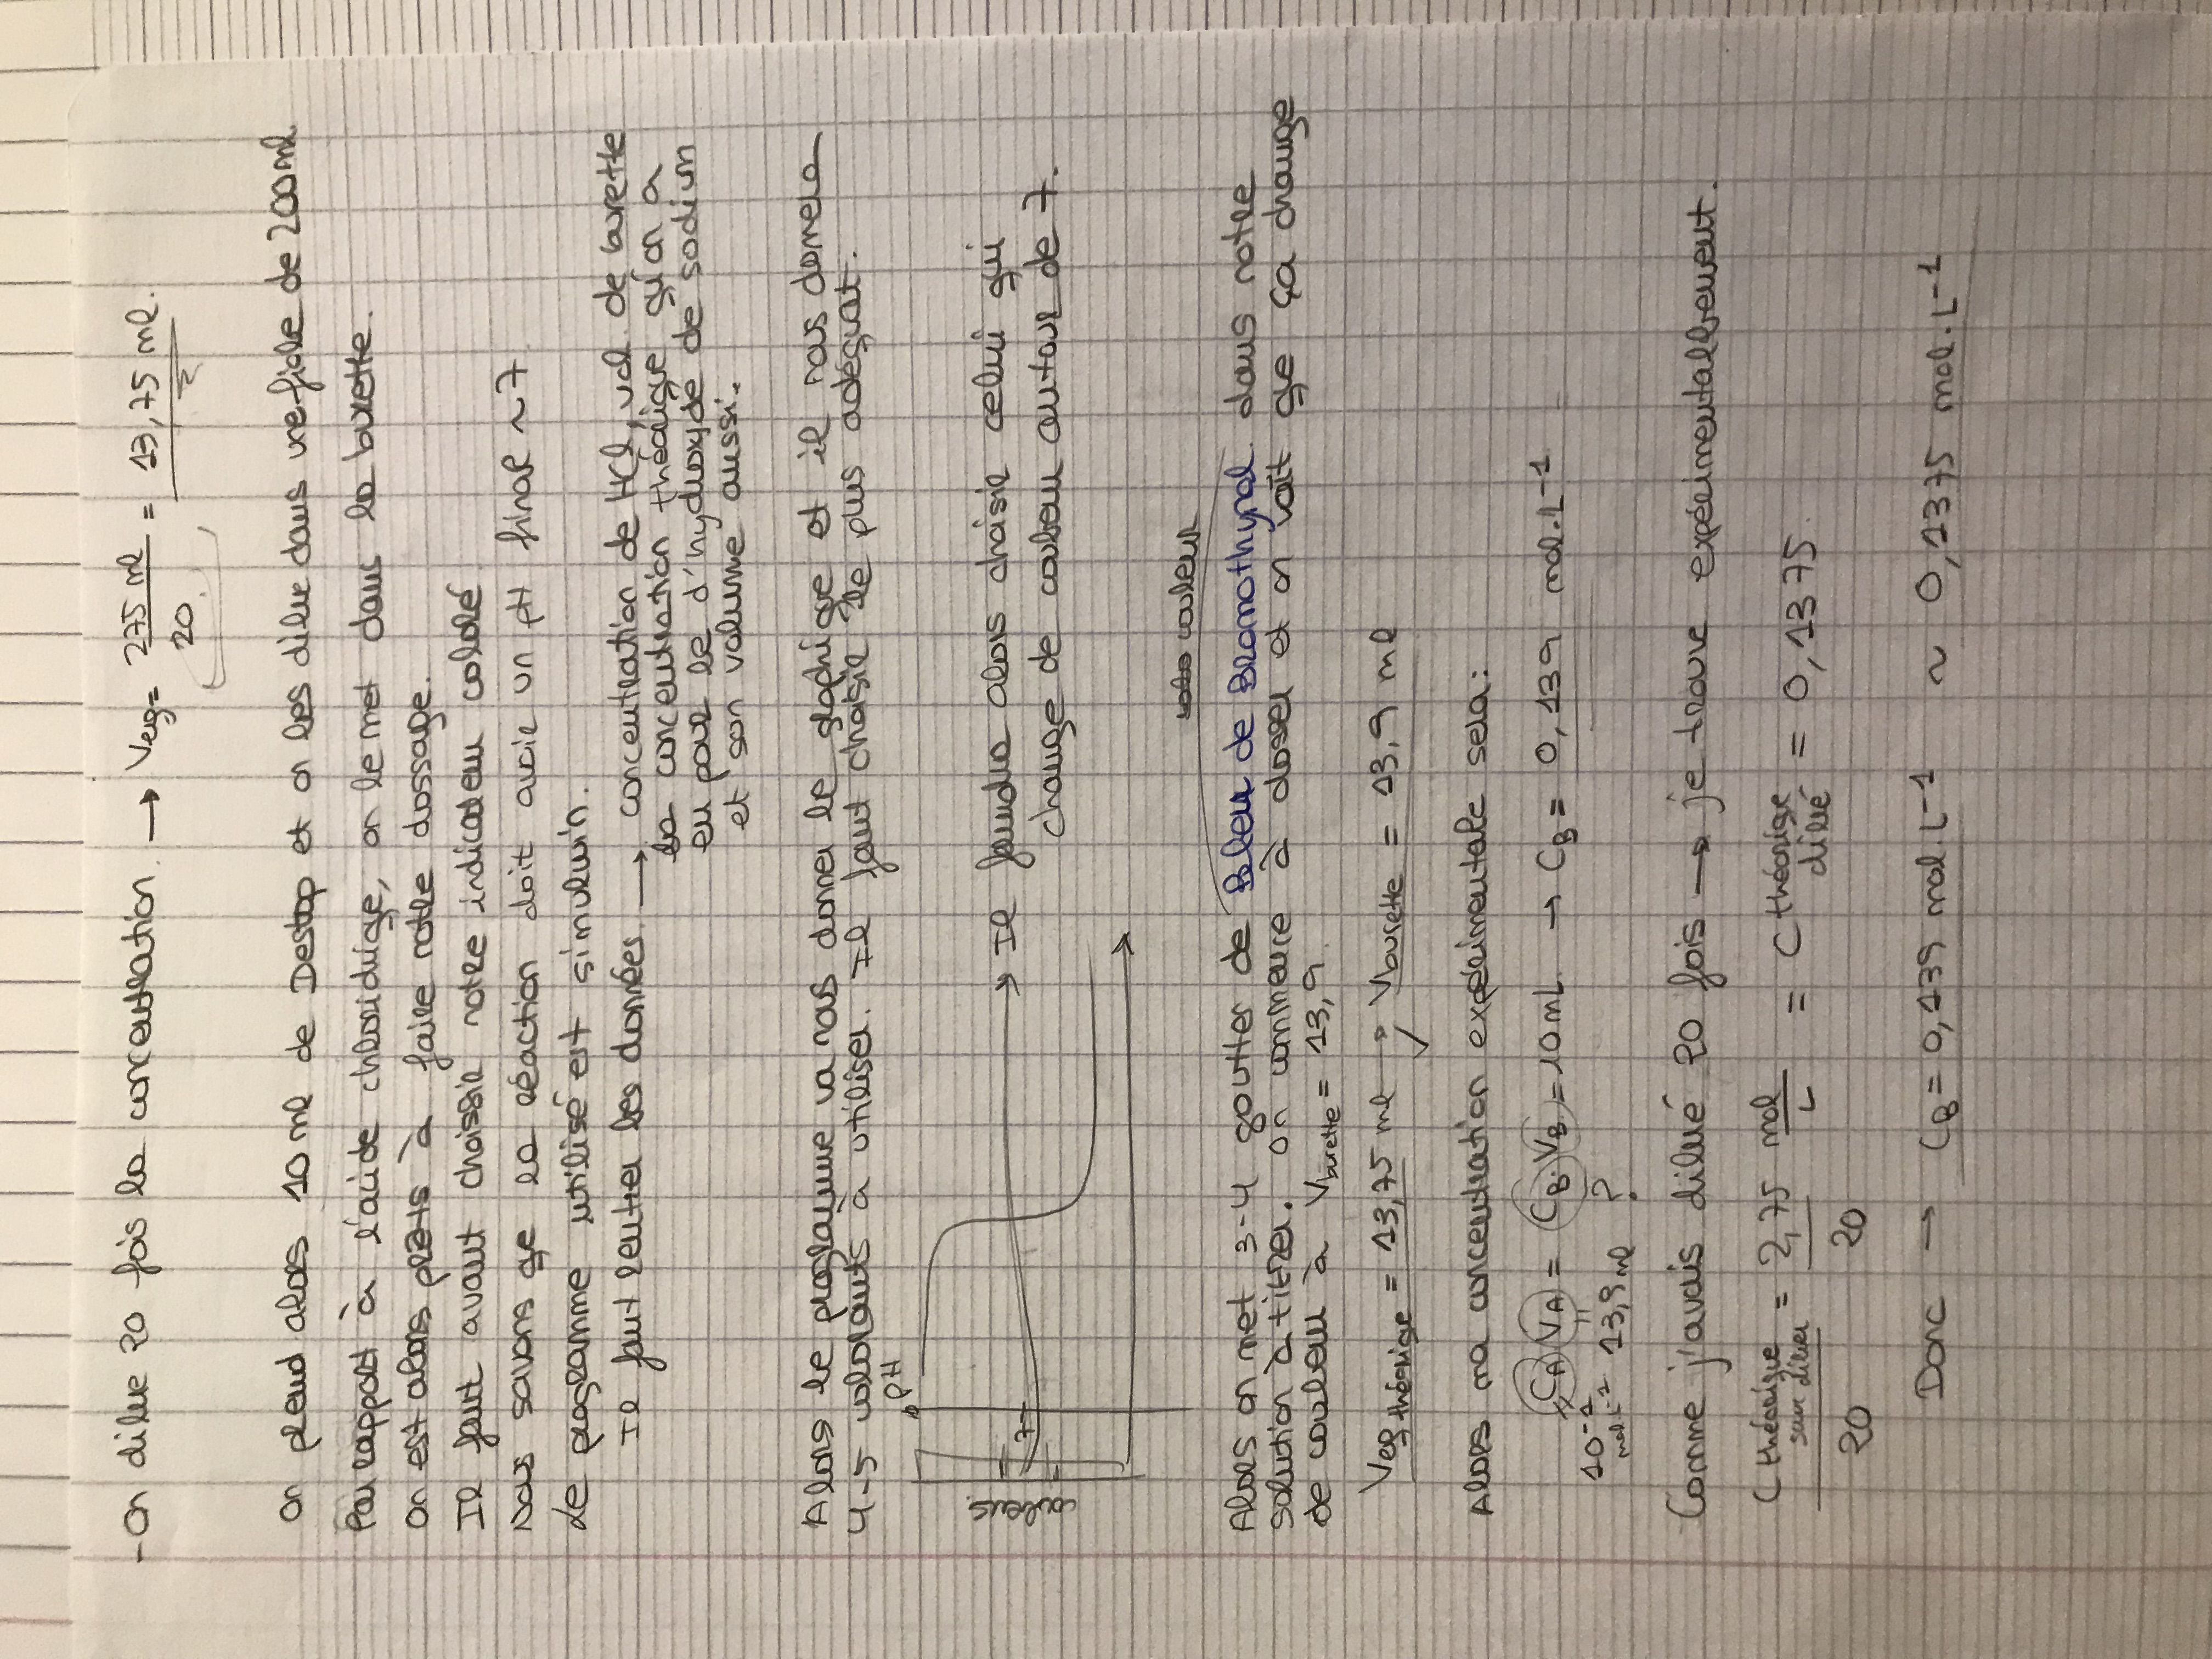 - On dilue 20 fois la concentration. → Veq = 275 ml / 20 = 13,75 ml.
On prend alors 10 ml de Destop et on les dilue dans une fiole de 200 ml
Par rapport à l'acide chloridrique, on le met dans la burette.
On est alors prêts à faire notre dossage.
Il faut avant choissir notre indicateur coloré
Nous savons que la réaction doit avoir un pH final ~ 7
Le programme utilisé est simulwin.
Il faut rentrer les données → concentration de HCl, vol de burette
la concentration théorique qu'on a
eu pour le d'hydroxyde de sodium
et son volume aussi.
Alors le programme va nous donner le graphique et il nous donnera
4-5 colorants à utiliser. Il faut choisir le plus adéquat.
pH
couleurs
7
→ Il faudra alors choisir celui qui
change de couleur autour de 7.
couleur
Alors on met 3-4 goutter de Bleu de Bromothymol dans notre
solution à titrer. On commence à dosser et on voit que ça change
de couleur à Vburette = 13,9.
Veq théorique = 13,75 ml → Vburette = 13,9 ml
✓
Alors ma concentration expérimentale sera:
CA VA = CB. VB = 10 mL → CB = 0,139 mol.L-1
= 10-1 mol.L-1 = 13,9 ml ?
Comme j'avais dilué 20 fois → je trouve expérimentallement.
C théorique sans diluer / 20 = 2,75 / 20 mol / L = C théorique dilué = 0,1375.
Donc → CB = 0,139 mol.L-1 ~ 0,1375 mol.L-1